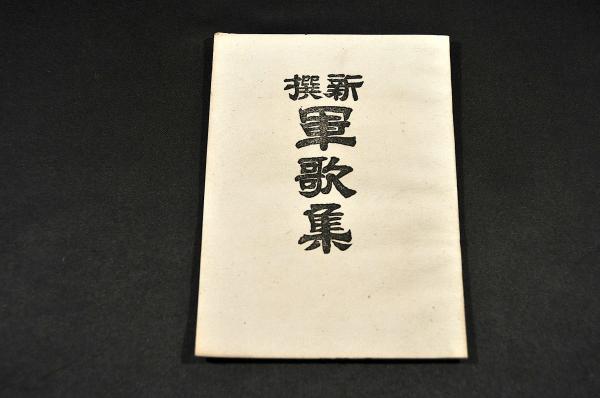 新撰
軍歌集